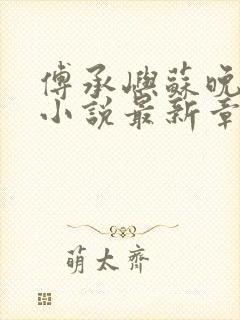 傅承嶼蘇晚
小說最新章
萌太齋